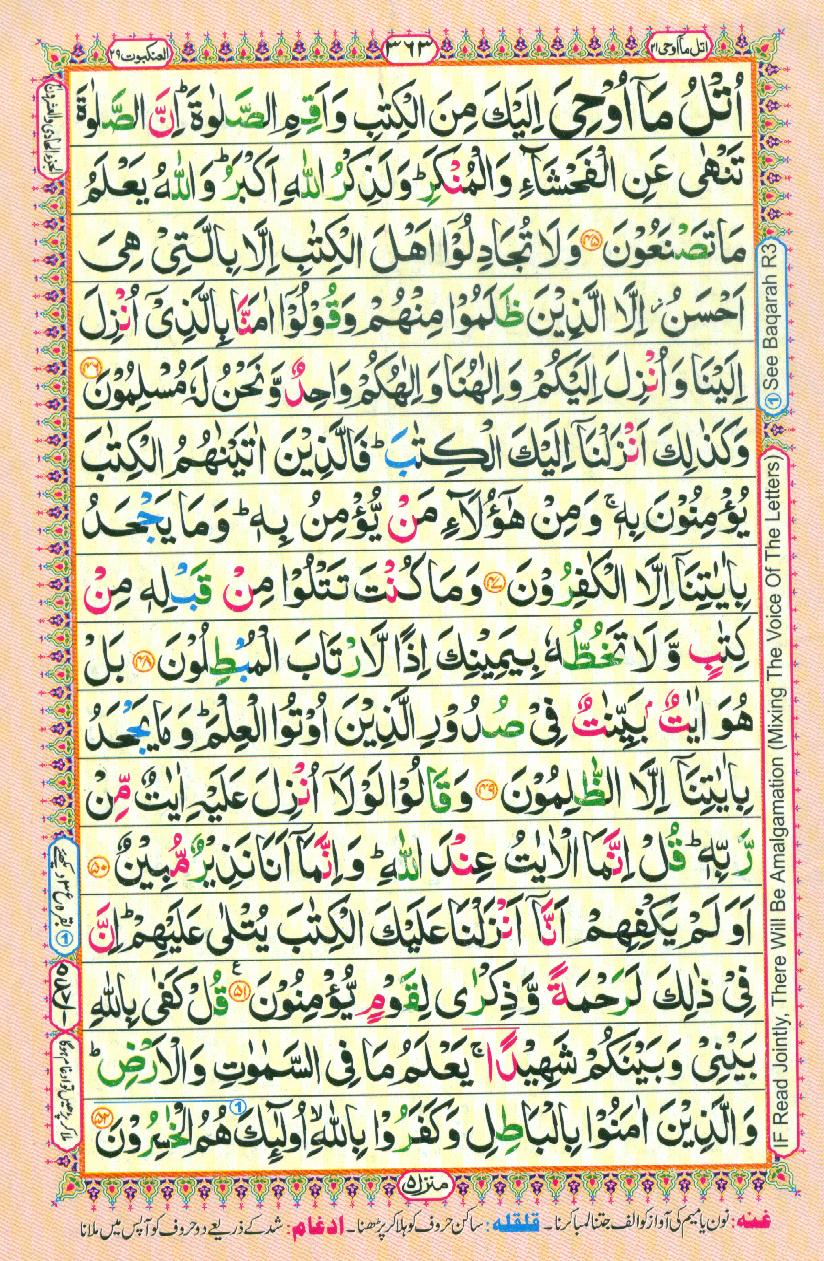 اتل ما اوحی ۲۱
۳۶۳
العنکبوت ۲۹
اُتْلُ مَاۤ اُوْحِیَ اِلَیْكَ مِنَ الْكِتٰبِ وَاَقِمِ الصَّلٰوةَ ؕ اِنَّ الصَّلٰوةَ
تَنْهٰى عَنِ الْفَحْشَآءِ وَالْمُنْكَرِ ؕ وَلَذِكْرُ اللّٰهِ اَكْبَرُ ؕ وَاللّٰهُ یَعْلَمُ
مَا تَصْنَعُوْنَ ﴿۴۵﴾ وَلَا تُجَادِلُوْۤا اَهْلَ الْكِتٰبِ اِلَّا بِالَّتِیْ هِیَ
اَحْسَنُ ۖ اِلَّا الَّذِیْنَ ظَلَمُوْا مِنْهُمْ وَقُوْلُوْۤا اٰمَنَّا بِالَّذِیْۤ اُنْزِلَ
اِلَیْنَا وَاُنْزِلَ اِلَیْكُمْ وَاِلٰهُنَا وَاِلٰهُكُمْ وَاحِدٌ وَّنَحْنُ لَهٗ مُسْلِمُوْنَ ﴿۴۶﴾
وَكَذٰلِكَ اَنْزَلْنَاۤ اِلَیْكَ الْكِتٰبَ ؕ فَالَّذِیْنَ اٰتَیْنٰهُمُ الْكِتٰبَ
یُؤْمِنُوْنَ بِهٖ ۚ وَمِنْ هٰۤؤُلَآءِ مَنْ یُّؤْمِنُ بِهٖ ؕ وَمَا یَجْحَدُ
بِاٰیٰتِنَاۤ اِلَّا الْكٰفِرُوْنَ ﴿۴۷﴾ وَمَا كُنْتَ تَتْلُوْا مِنْ قَبْلِهٖ مِنْ
كِتٰبٍ وَّلَا تَخُطُّهٗ بِیَمِیْنِكَ اِذًا لَّارْتَابَ الْمُبْطِلُوْنَ ﴿۴۸﴾ بَلْ
هُوَ اٰیٰتٌۢ بَیِّنٰتٌ فِیْ صُدُوْرِ الَّذِیْنَ اُوْتُوا الْعِلْمَ ؕ وَمَا یَجْحَدُ
بِاٰیٰتِنَاۤ اِلَّا الظّٰلِمُوْنَ ﴿۴۹﴾ وَقَالُوْا لَوْلَاۤ اُنْزِلَ عَلَیْهِ اٰیٰتٌ مِّنْ
رَّبِّهٖ ؕ قُلْ اِنَّمَا الْاٰیٰتُ عِنْدَ اللّٰهِ ؕ وَاِنَّمَاۤ اَنَا نَذِیْرٌ مُّبِیْنٌ ﴿۵۰﴾
اَوَلَمْ یَكْفِهِمْ اَنَّاۤ اَنْزَلْنَا عَلَیْكَ الْكِتٰبَ یُتْلٰى عَلَیْهِمْ ؕ اِنَّ
فِیْ ذٰلِكَ لَرَحْمَةً وَّذِكْرٰى لِقَوْمٍ یُّؤْمِنُوْنَ ﴿۵۱﴾ ع قُلْ كَفٰى بِاللّٰهِ
بَیْنِیْ وَبَیْنَكُمْ شَهِیْدًا ۚ یَعْلَمُ مَا فِی السَّمٰوٰتِ وَالْاَرْضِ ؕ
وَالَّذِیْنَ اٰمَنُوْا بِالْبَاطِلِ وَكَفَرُوْا بِاللّٰهِ ۙ اُولٰٓئِكَ هُمُ الْخٰسِرُوْنَ ﴿۵۲﴾
منزل ۵
① See Baqarah R3
IF Read Jointly, There Will Be Amalgamation (Mixing The Voice Of The Letters)
① بقرہ ع ۳ دیکھیے
غنہ: نون یا میم کی آواز کو الف جتنا لمبا کرنا۔ قلقلہ: ساکن حروف کو ہلا کر پڑھنا۔ ادغام: شد کے ذریعے دو حروف کو آپس میں ملانا